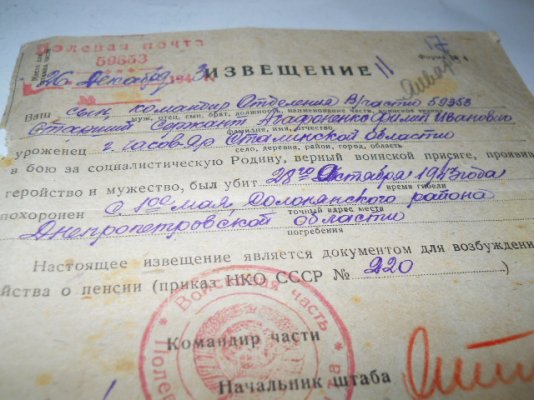 Полевая почта
59653
Форма № 4
26 декабря 194 3
ИЗВЕЩЕНИЕ
Ваш сын, командир Отделения В/части 59353
муж, отец, сын, брат, должность, наименование части, воинское звание
Старший Сержант Агафоненко Филип Иванович
фамилия, имя, отчество
уроженец г. Сталинской области
село, деревня, район, город, область
в бою за социалистическую Родину, верный воинской присяге, проявив
геройство и мужество, был убит 28го Октября 1943 года
время гибели
похоронен с. 1ое мая, Солонянского района
точный адрес места
Днепропетровской области
погребения
Настоящее извещение является документом для возбуждения
йства о пенсии (приказ НКО СССР № 220 )
Войсковая часть
Командир части
Начальник штаба